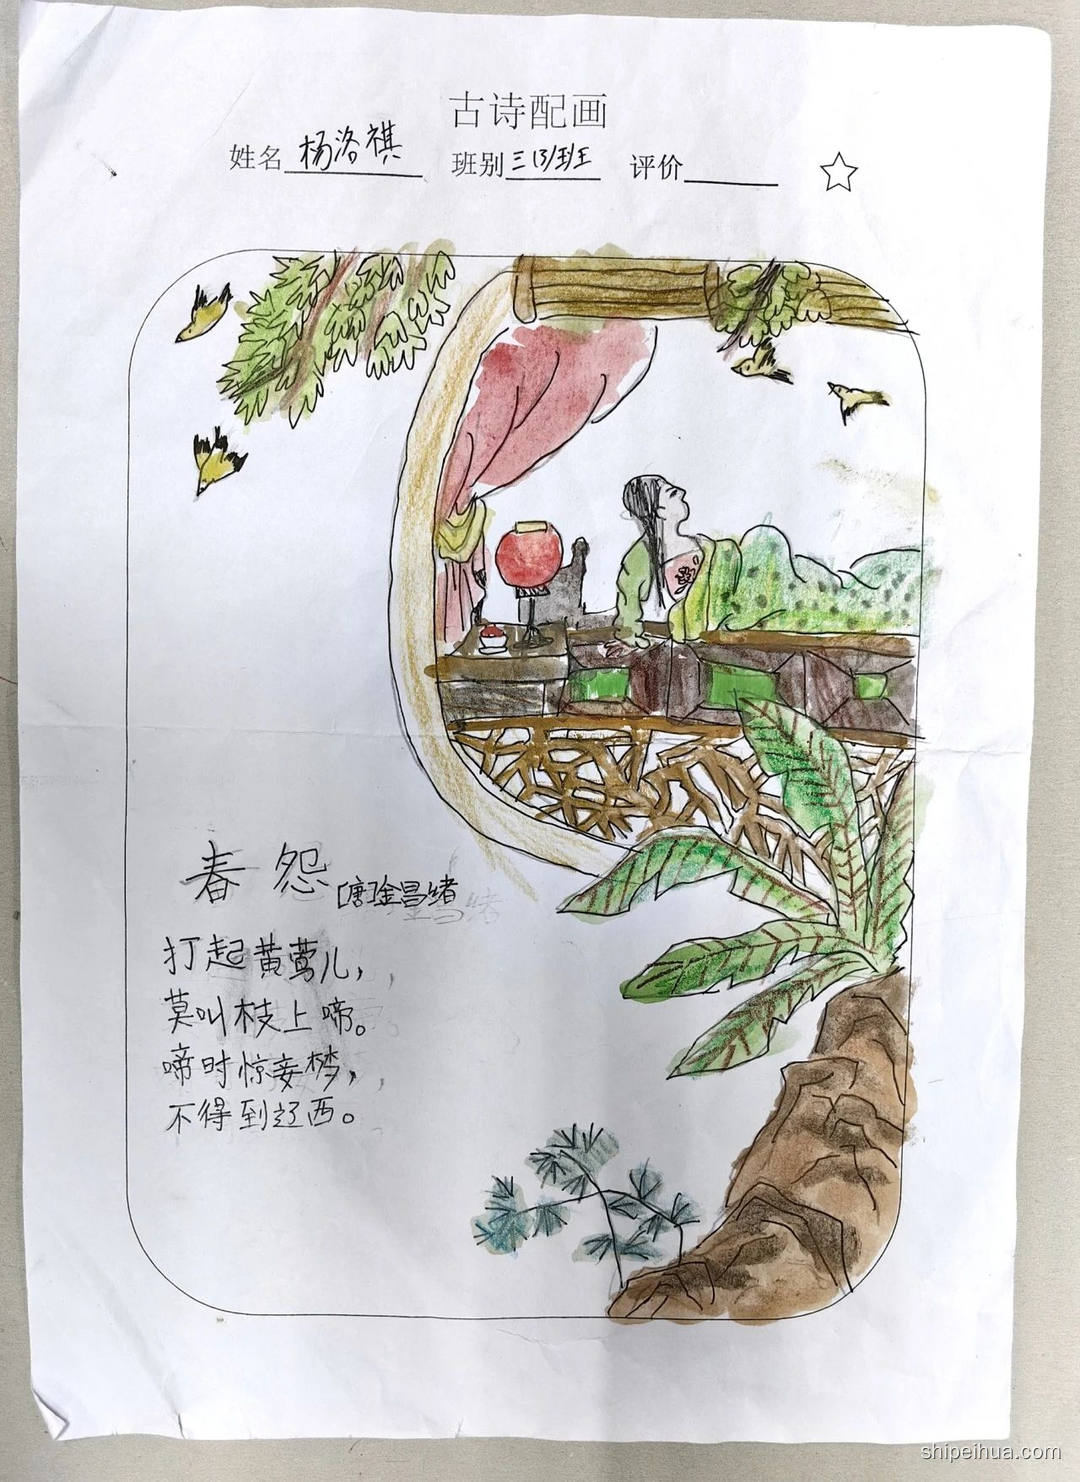 古诗配画
姓名 杨洛祺 班别 三(3)班 评价
春怨
[唐]金昌绪
打起黄莺儿，
莫叫枝上啼。
啼时惊妾梦，
不得到辽西。
shipeihua.com